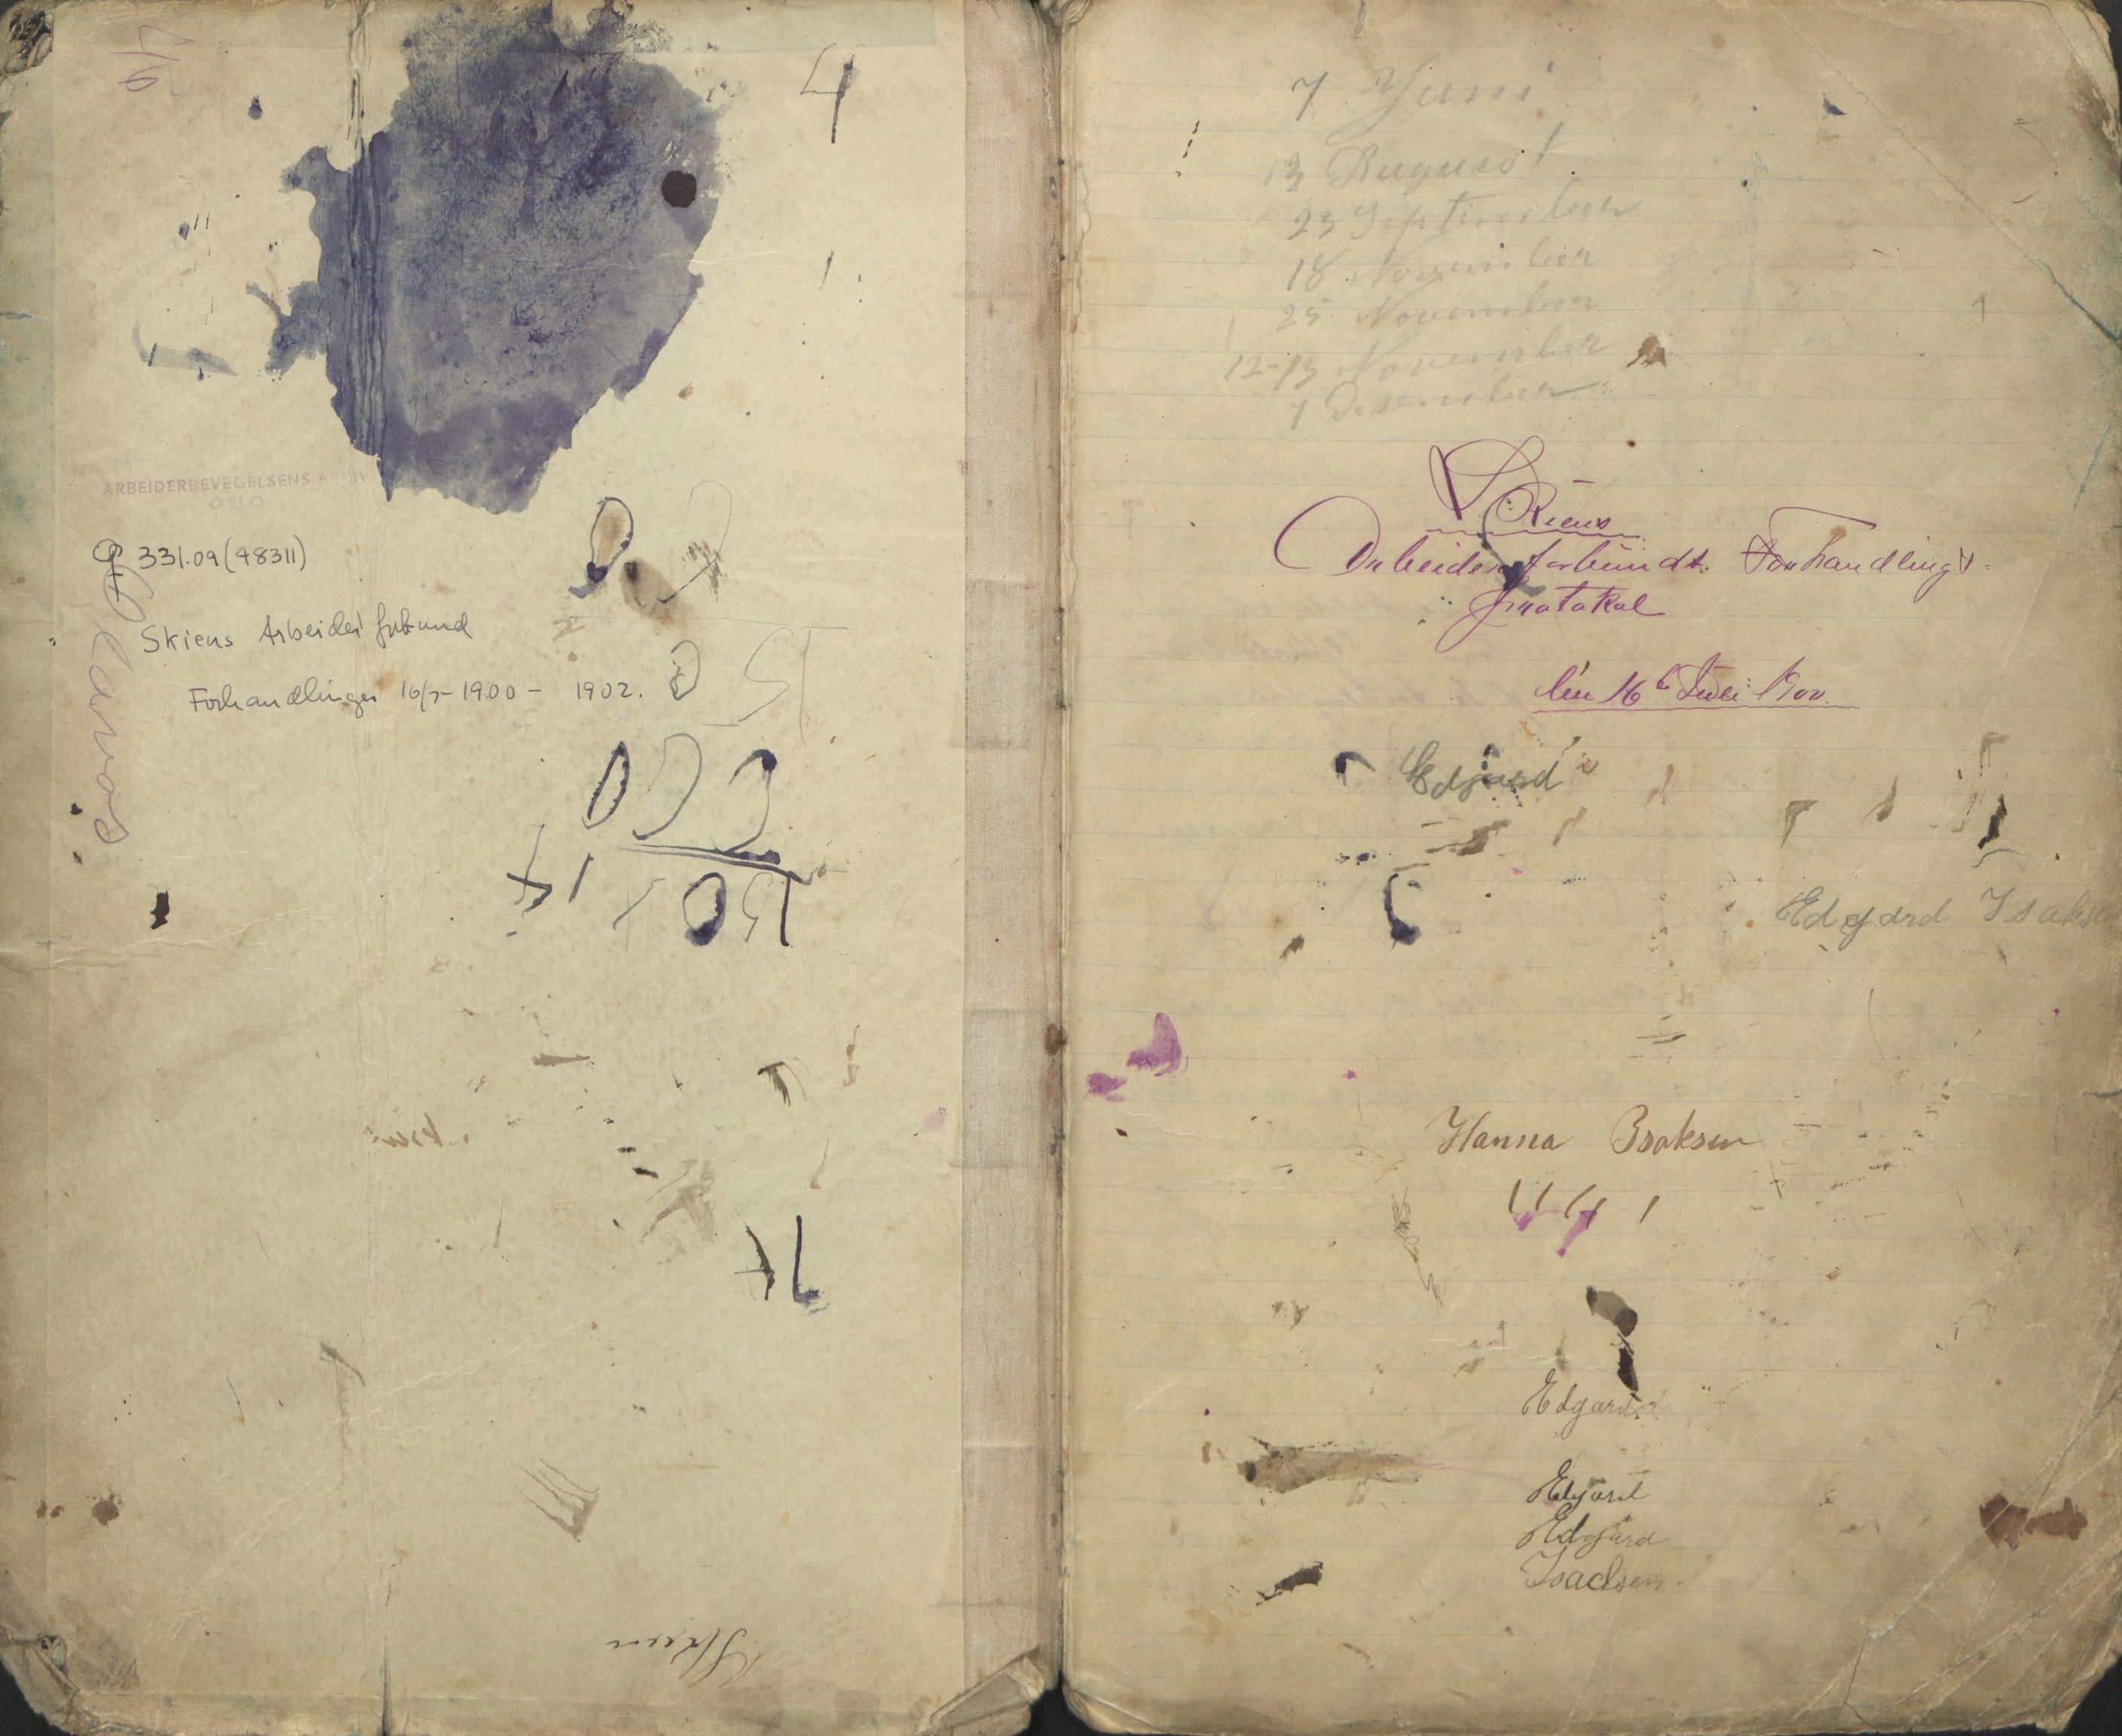 46
4
ARBEIDERBEVEGELSENS ARKIV
OSLO
q 331.09(48311)
Skiens Arbeiderforbund
Forhandlinger 16/7-1900 - 1902.
Skien
7 Juni
13 August
23 September
18 November
25 November
12-13 November
7 Desember
Skiens
Arbeiderforbunds Forhandlings-
protokol
den 16 Juli 1900.
Edgard
Edgard Isakse
Hanna Isaksen
Edgard
Edgard
Edgard
Isachsen